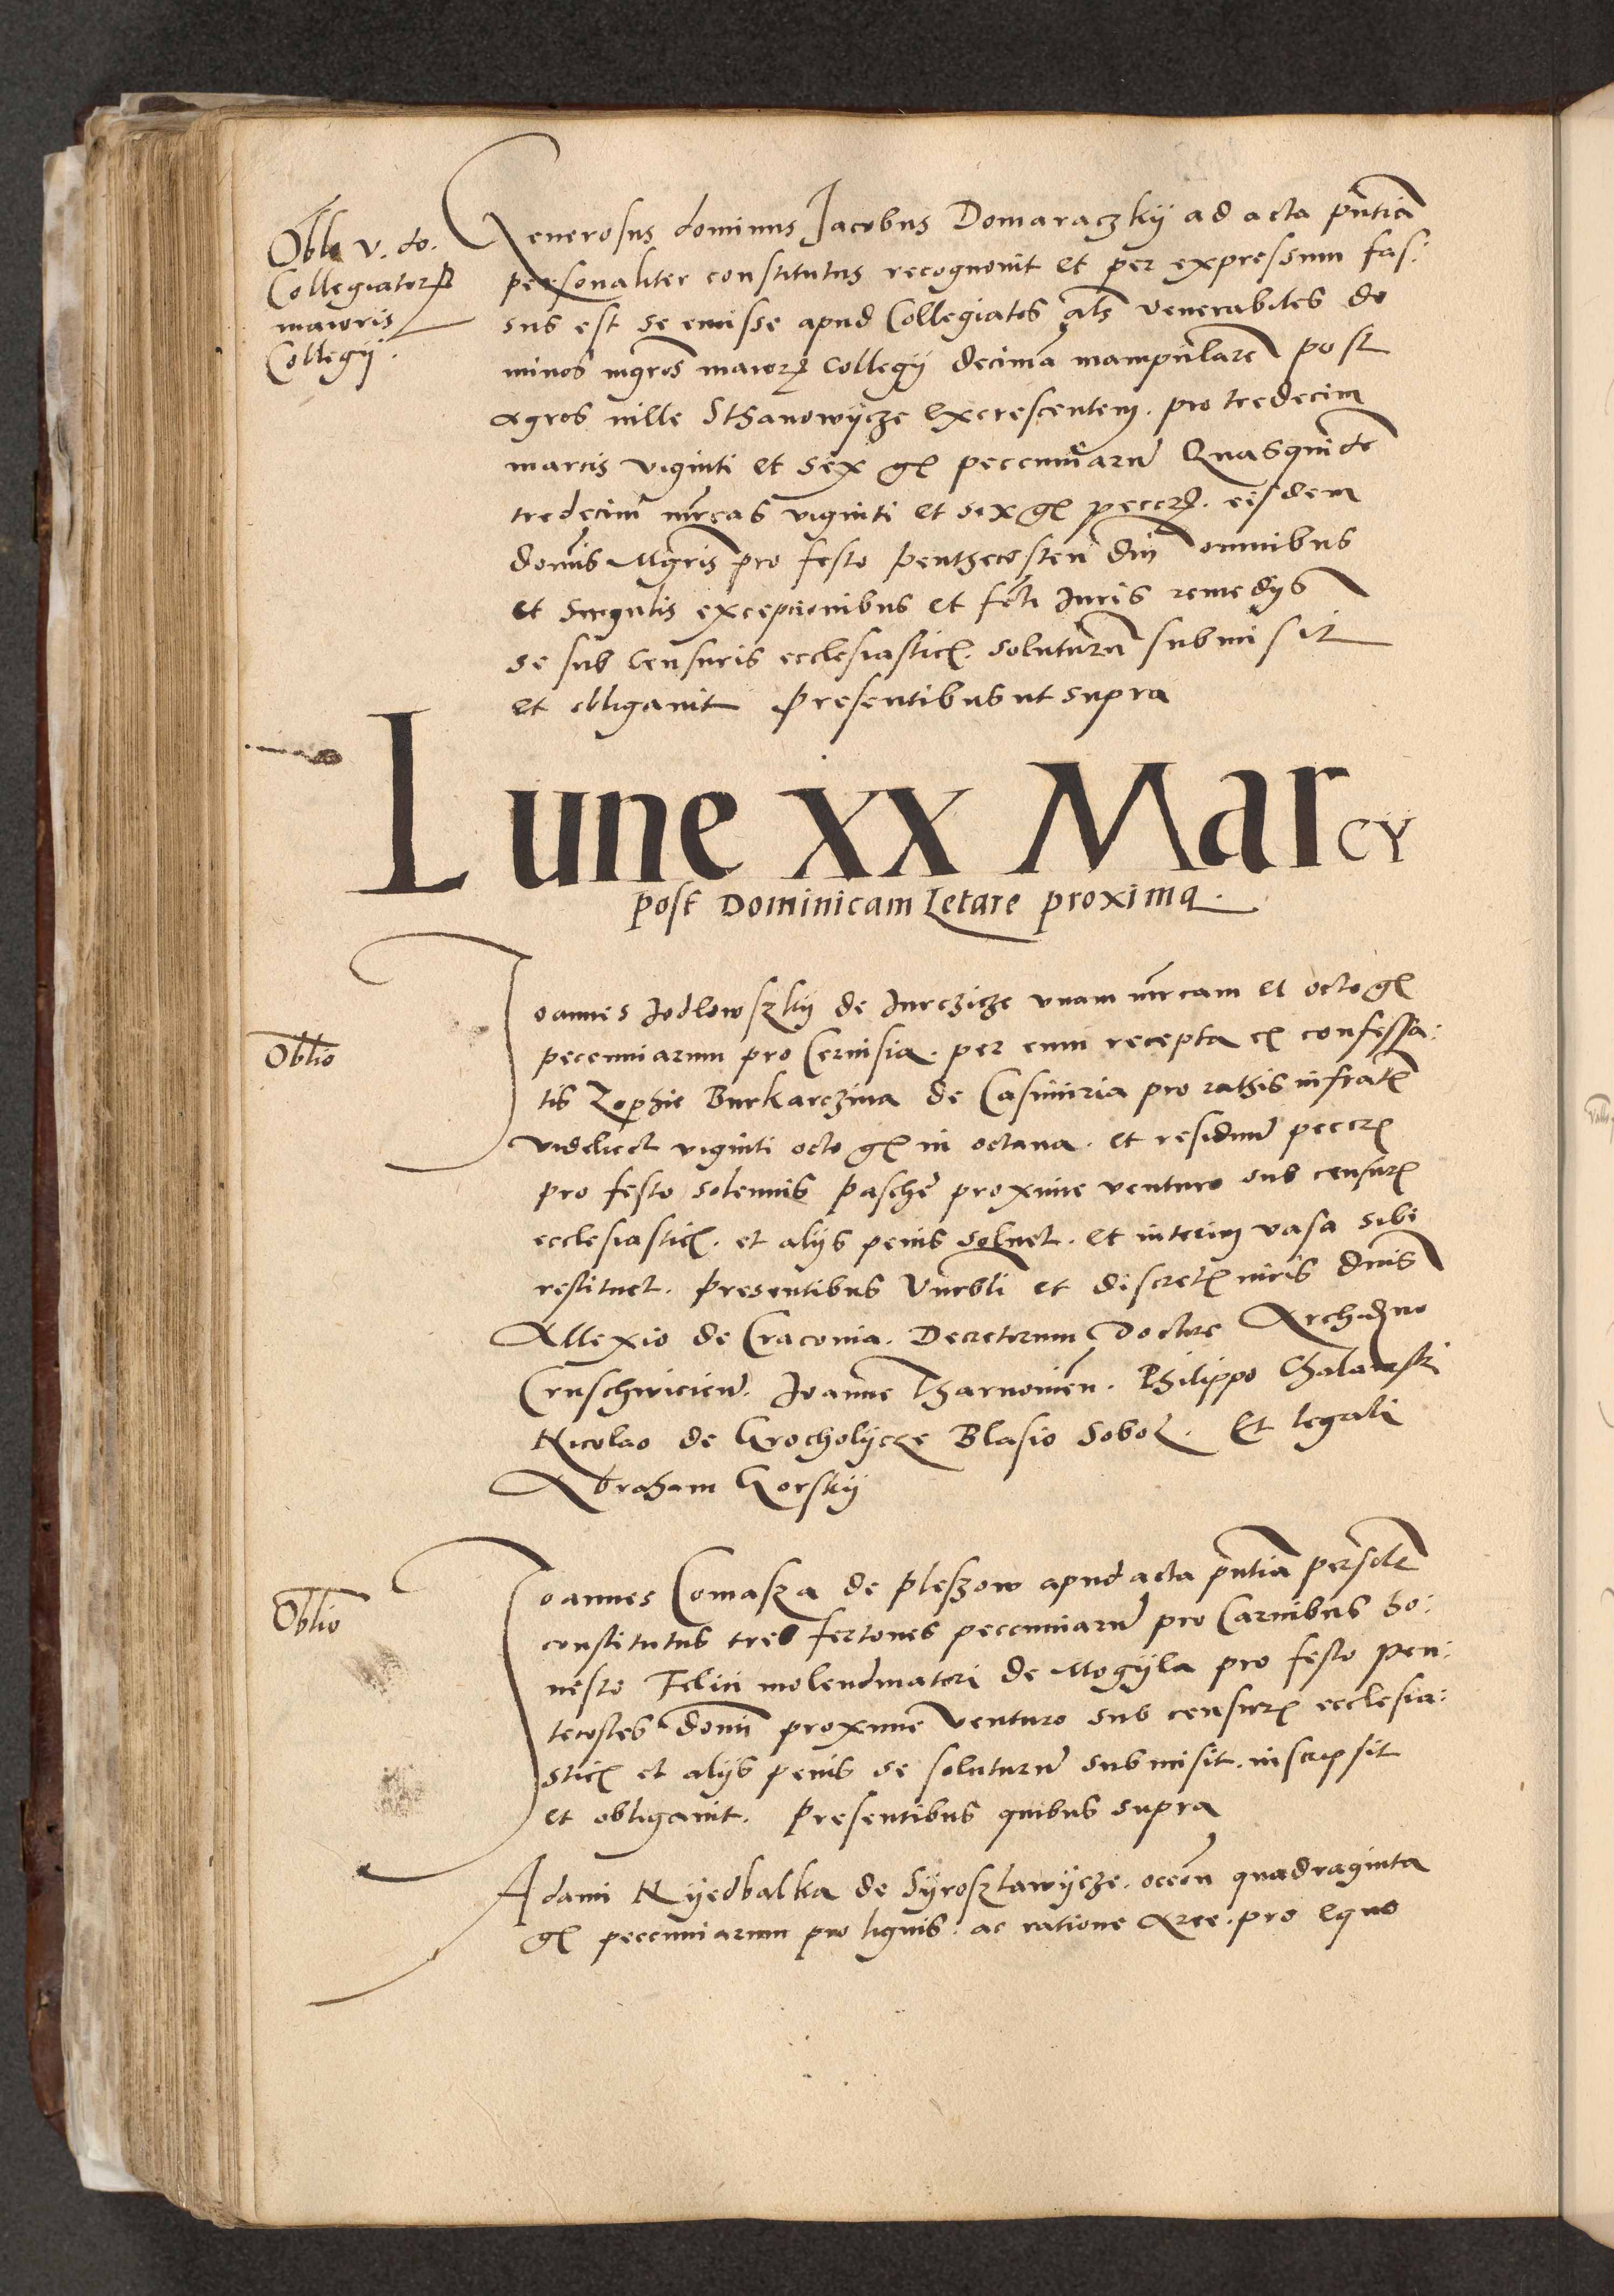 Oblo v. do.
Collegiator
maioris
Collegij.
Generosus dominus Jacobus Domaraczkij ad acta pntia
personaliter constitutus recognouit et per expressum fas:
sus est se emisse apud Collegiatos als venerabiles do
minos mgros maior Collegij decima manipulare post
agros ville Sthanowijcze excrescentem. pro tredecim
marcis viginti et sex gl peccuniaru Quasquide
tredecim mrcas viginti et sex gl peccr. eisdem
domis Mgris pro festo penthecosten omnibus
et singulis exceptionibus et Juris remedijs
se sub Censuris ecclesiastic. soluturu submisit
et obligauit presentibus ut supra
Lune xx Marcy
post Dominicam Letare proxima.
Oblio
Joannes Jodlowszkij de Jurczicze vnam mrcam et octo gl
pecuniarum pro Ceruisia. per eum recepta confessa:
tis Zophie Burkarczina de Casimiria pro rathis infrat
videlicet viginti octo gl in octaua. et residuu peccr
pro festo solennis pasche proxime venturo sub censur
ecclesiastic. et alijs penis soluet. et interim vasa sibi
restituet. presentibus Vnrbli et discret viris dnis
Allexio de Craconia. Decretorum Doctore Archidno
Cruschwicien. Joanne Tharnouien. Philippo
Nicolao de Grocholijcze Blasio Sobol. Et legali
Abraham Gorskij
Oblio
Joannes Comasza de pleszow apud acta pntia persolr
constitutus tres fertones peccuniaru pro Carnibus ho:
nesto Felici molendinatori de Mogijla pro festo pen:
tecostes domi proxime venturo sub censur ecclesia:
stic et alijs penis se soluturu submisit. inscripsit
et obligauit. presentibus quibus supra
Adami Nijedbalka de Sijroszlawijcze. quadraginta
gl peccuniarum pro lignis. ac ratione pro equo